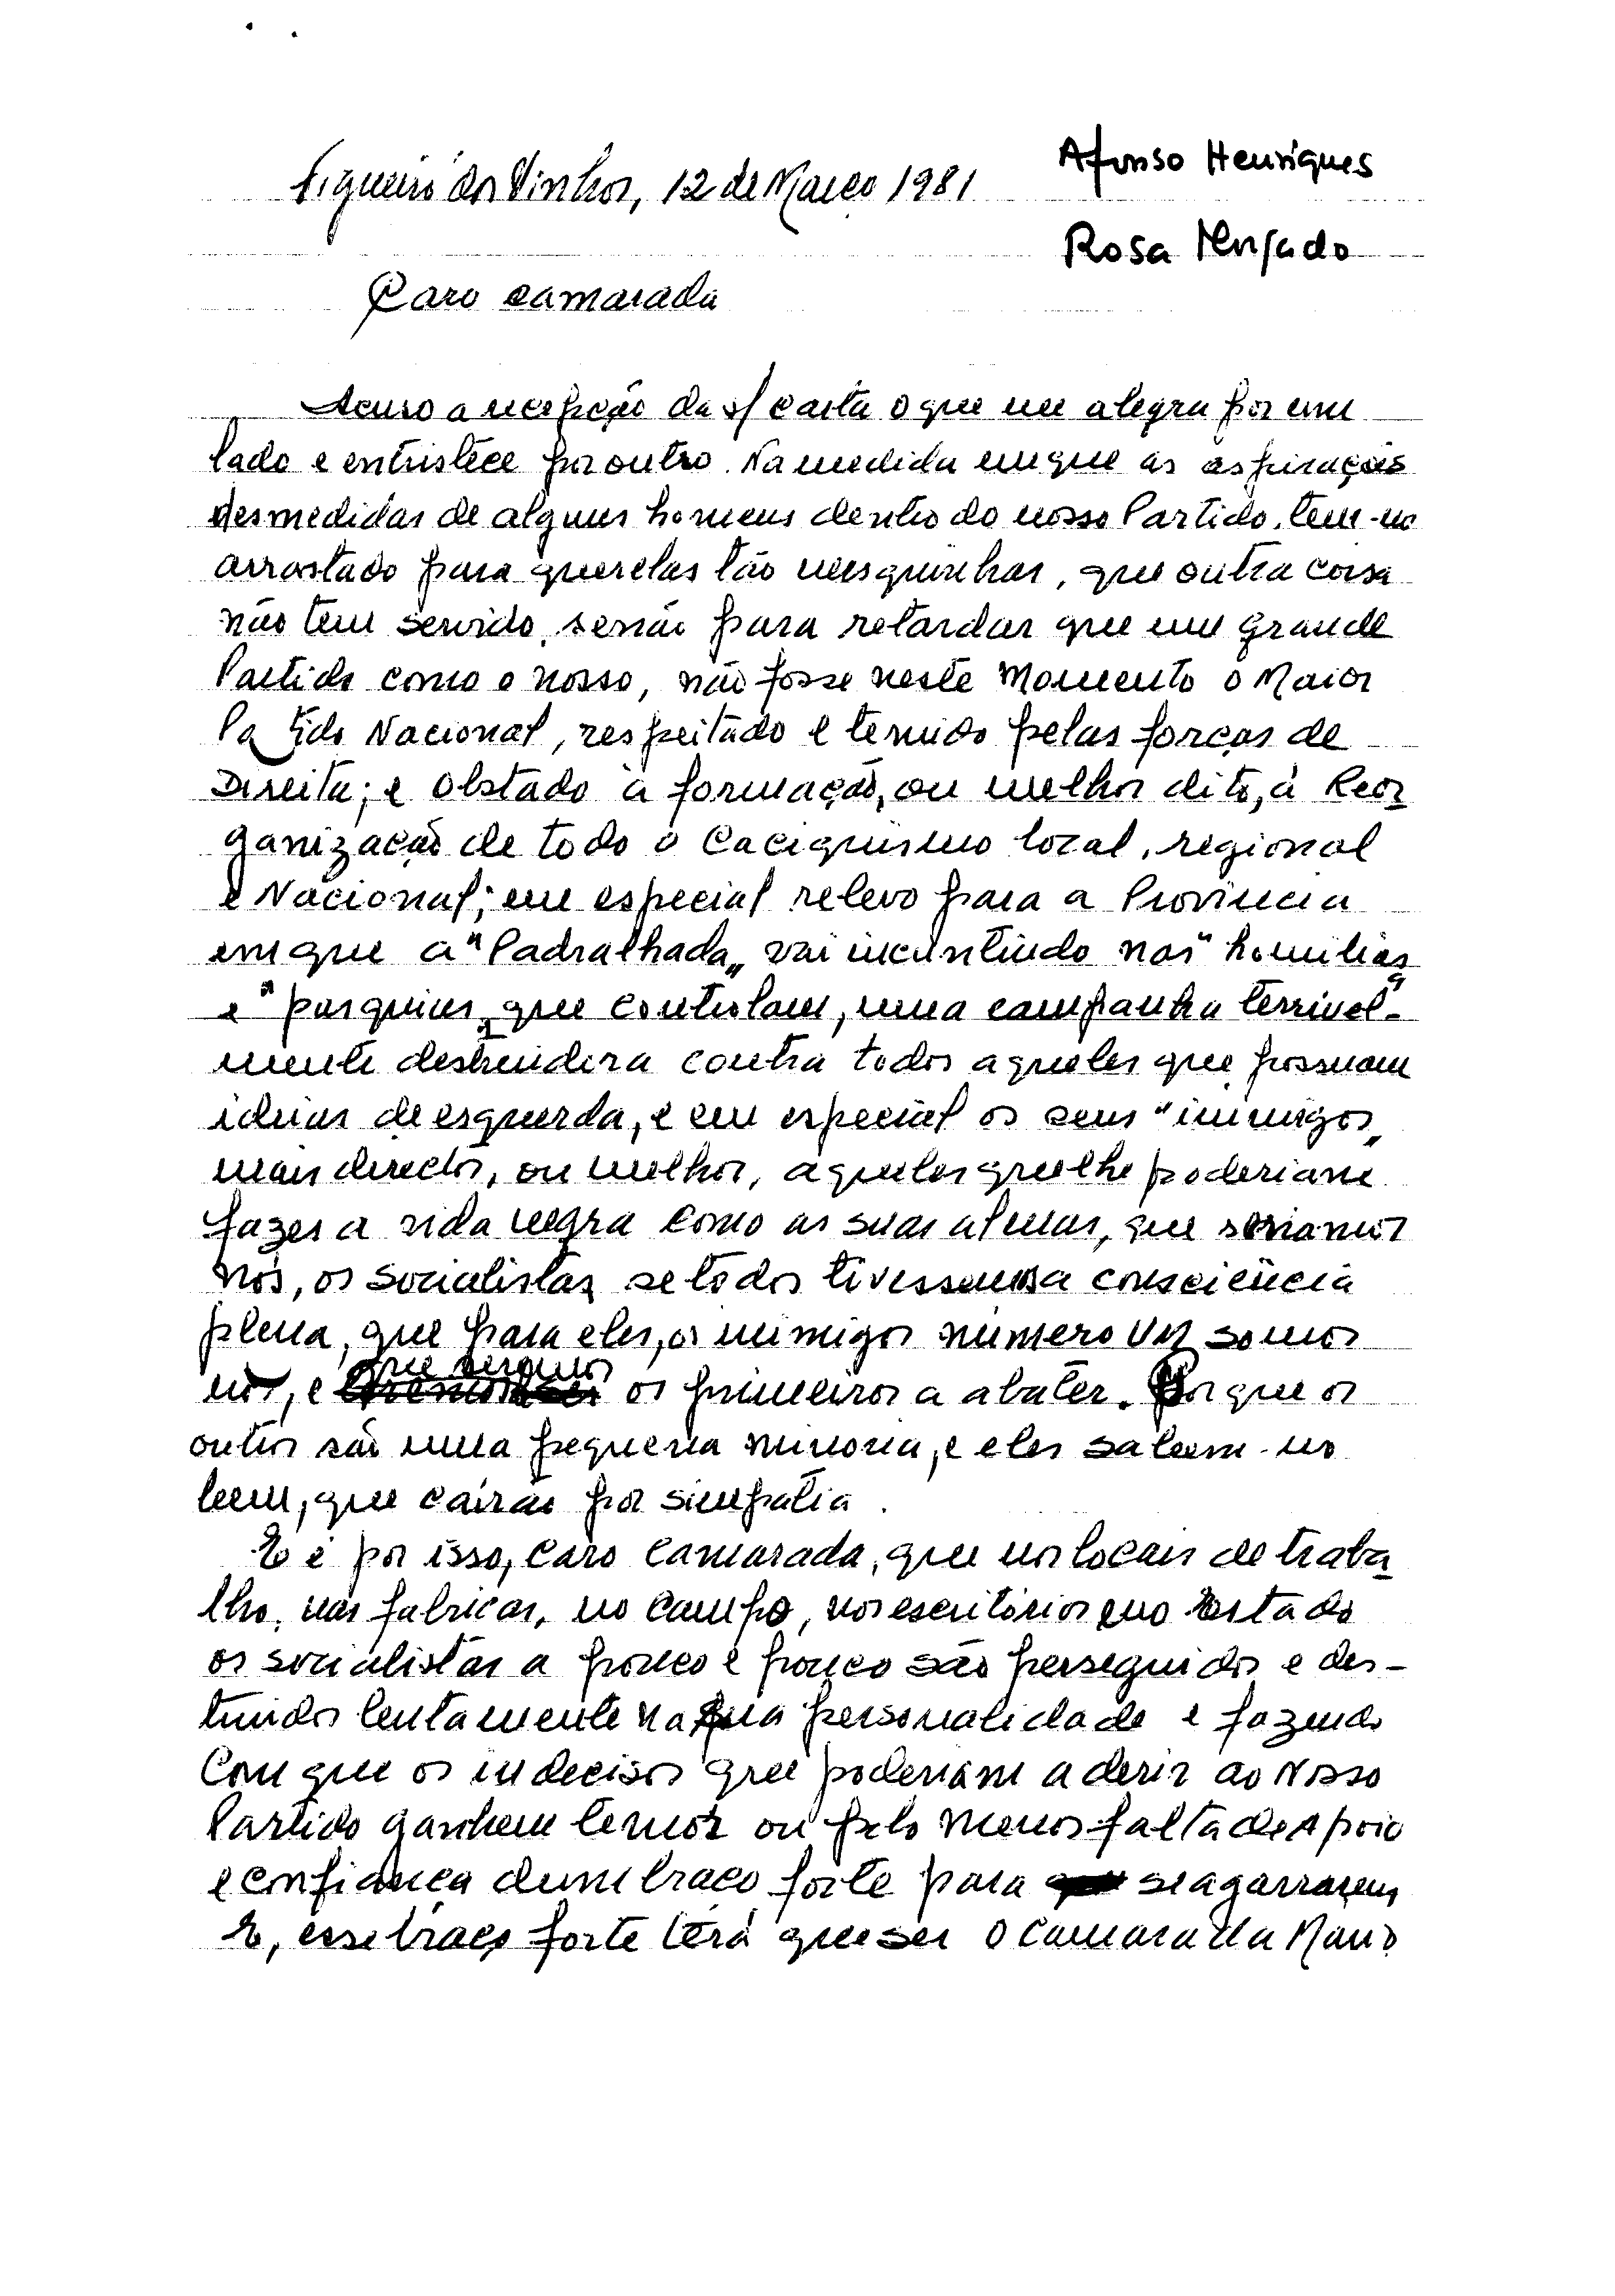 Afonso Henriques
Figueiró dos Vinhos, 12 de Março 1981
Rosa
Caro camarada
Acuso a recepção da s/ carta o que me alegra por um
lado e entristece por outro. Na medida em que as aspirações
desmedidas de alguns homens dentro do nosso Partido, tem-no
arrastado para querelas tão mesquinhas, que outra coisa
não tem servido, senão para retardar que um grande
Partido como o nosso, não fosse neste Momento o Maior
Partido Nacional, respeitado e temido pelas forças de
Direita; e obstado à formação, ou melhor dito, à Reor
ganização de todo o Caciquismo local, regional
e Nacional; em especial relevo para a Provincia
em que a "Padralhada" vai incontindo nas "homilias"
e "pasquins" que controlam, uma campanha terrivel-
mente destruidora contra todos aqueles que possuam
ideias de esquerda, e em especial os seus "inimigos"
mais directos, ou melhor, aqueles que lhe poderiam
fazer a vida negra como as suas almas, que seriamos
nós, os socialistas se todos tivessemos a consciência
plena, que para eles, os inimigos número um somos
nós, e que seremos os primeiros a abater. Porque os
outros são uma pequena minoria, e eles sabem-no
bem, que cairão por simpatia.
E é por isso, caro camarada, que nos locais de traba
lho, nas fabricas, no campo, nos escritórios e no Estado
os socialistas a pouco e pouco são perseguidos e des-
truidos lentamente na sua personalidade e fazendo
com que os indecisos que poderiam aderir ao Nosso
Partido ganhem temor ou pelo menos falta de Apoio
e confiança dum braço forte para se agarrarem
E, esse braço forte terá que ser o Camarada Mario